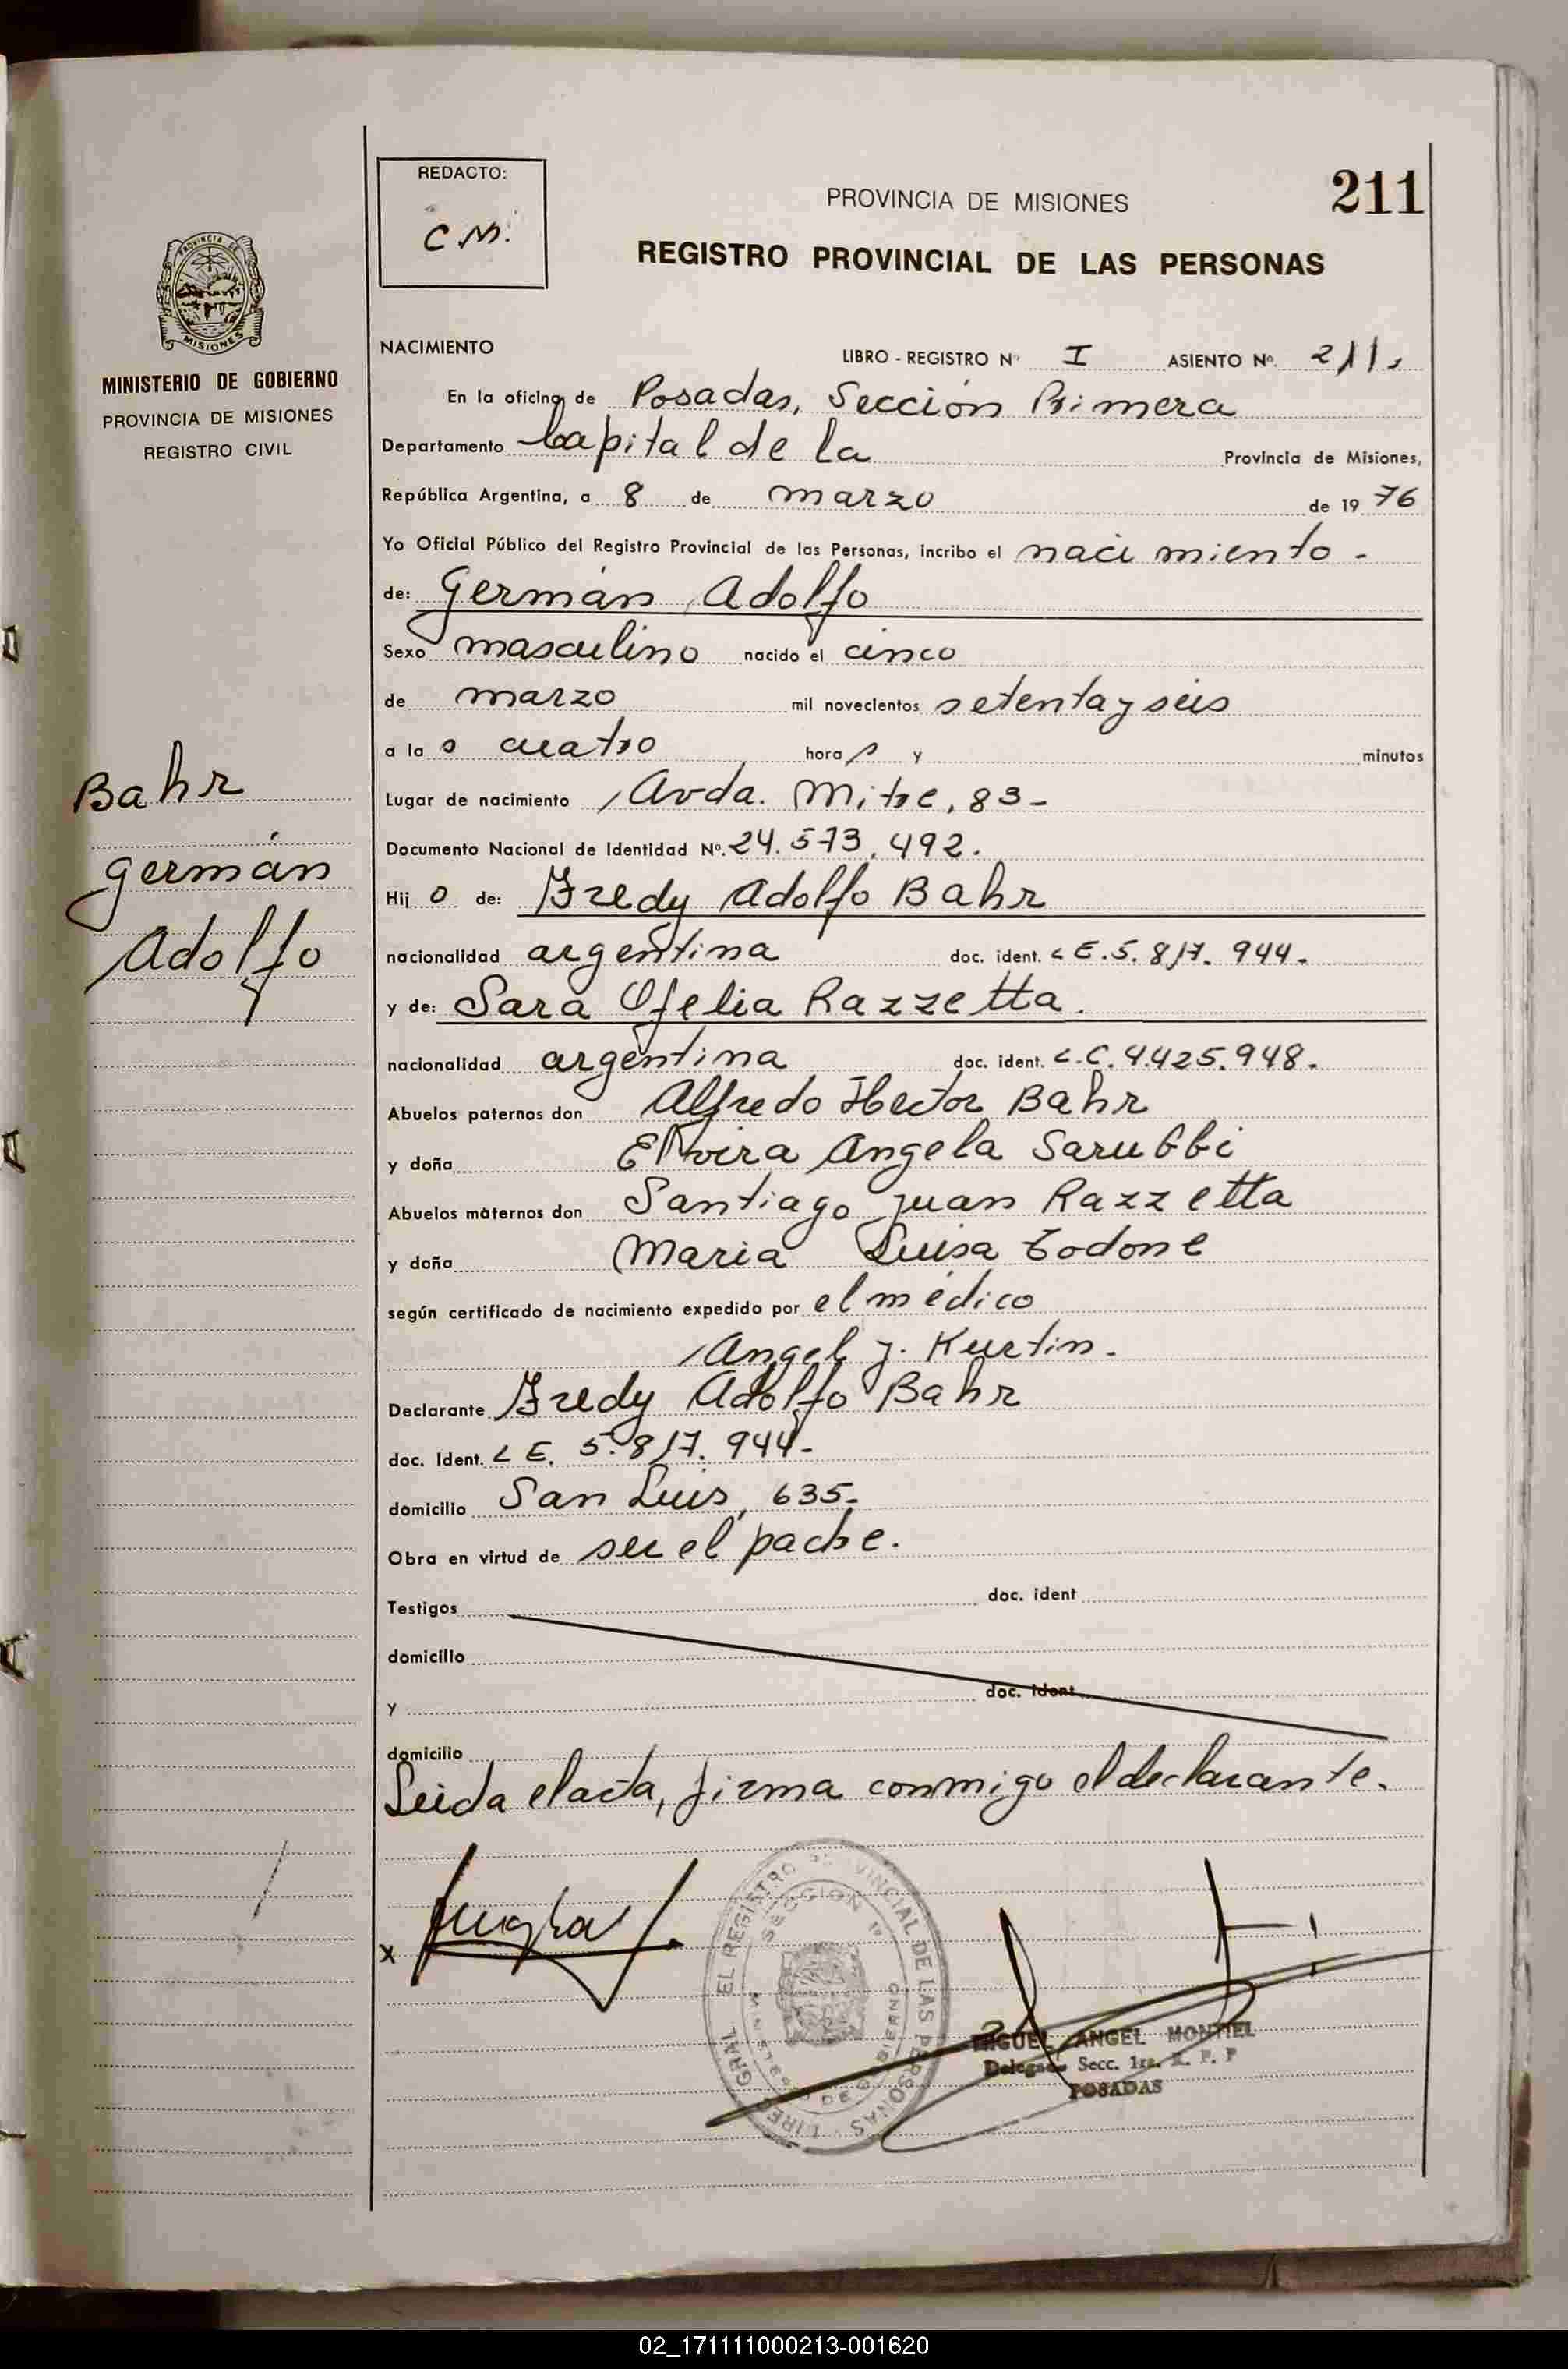 REDACTO:
C.M.
PROVINCIA DE MISIONES
211
REGISTRO PROVINCIAL DE LAS PERSONAS
MISIONES
MINISTERIO DE GOBIERNO
PROVINCIA DE MISIONES
REGISTRO CIVIL
NACIMIENTO
LIBRO - REGISTRO Nº I ASIENTO Nº. 211.
En la oficina de Posadas, Sección Primera
Departamento Capital de la Provincia de Misiones,
República Argentina, a 8 de marzo de 1976
Yo Oficial Público del Registro Provincial de las Personas, incribo el nacimiento -
de: Germán Adolfo
Sexo masculino nacido el cinco
de marzo mil novecientos setenta y seis
a la s cuatro hora s y minutos
Lugar de nacimiento Avda. Mitre, 83-
Documento Nacional de Identidad Nº. 24.573.492.
Hij o de: Fredy Adolfo Bahr
nacionalidad argentina doc. ident. LE.5.817.944.
y de: Sara Ofelia Razzetta.
nacionalidad argentina doc. ident. L.C.4.425.948.
Abuelos paternos don Alfredo Hector Bahr
y doña Elvira Angela Sarubbi
Abuelos maternos don Santiago Juan Razzetta
y doña Maria Luisa Todone
según certificado de nacimiento expedido por el médico
Angel J. Kurtin.
Declarante Fredy Adolfo Bahr
doc. Ident. LE. 5.817.944-
domicilio San Luis, 635-
Obra en virtud de ser el padre.
Testigos doc. ident
domicilio
y doc. ident
domicilio
Leida el acta, firma conmigo el declarante.
Bahr
Germán
Adolfo
x
EL REGISTRO PROVINCIAL DE LAS PERSONAS
SECCION 1ª
MIGUEL ANGEL MONTIEL
Delegado Secc. 1ra. R. P. P
POSADAS
02_171111000213-001620